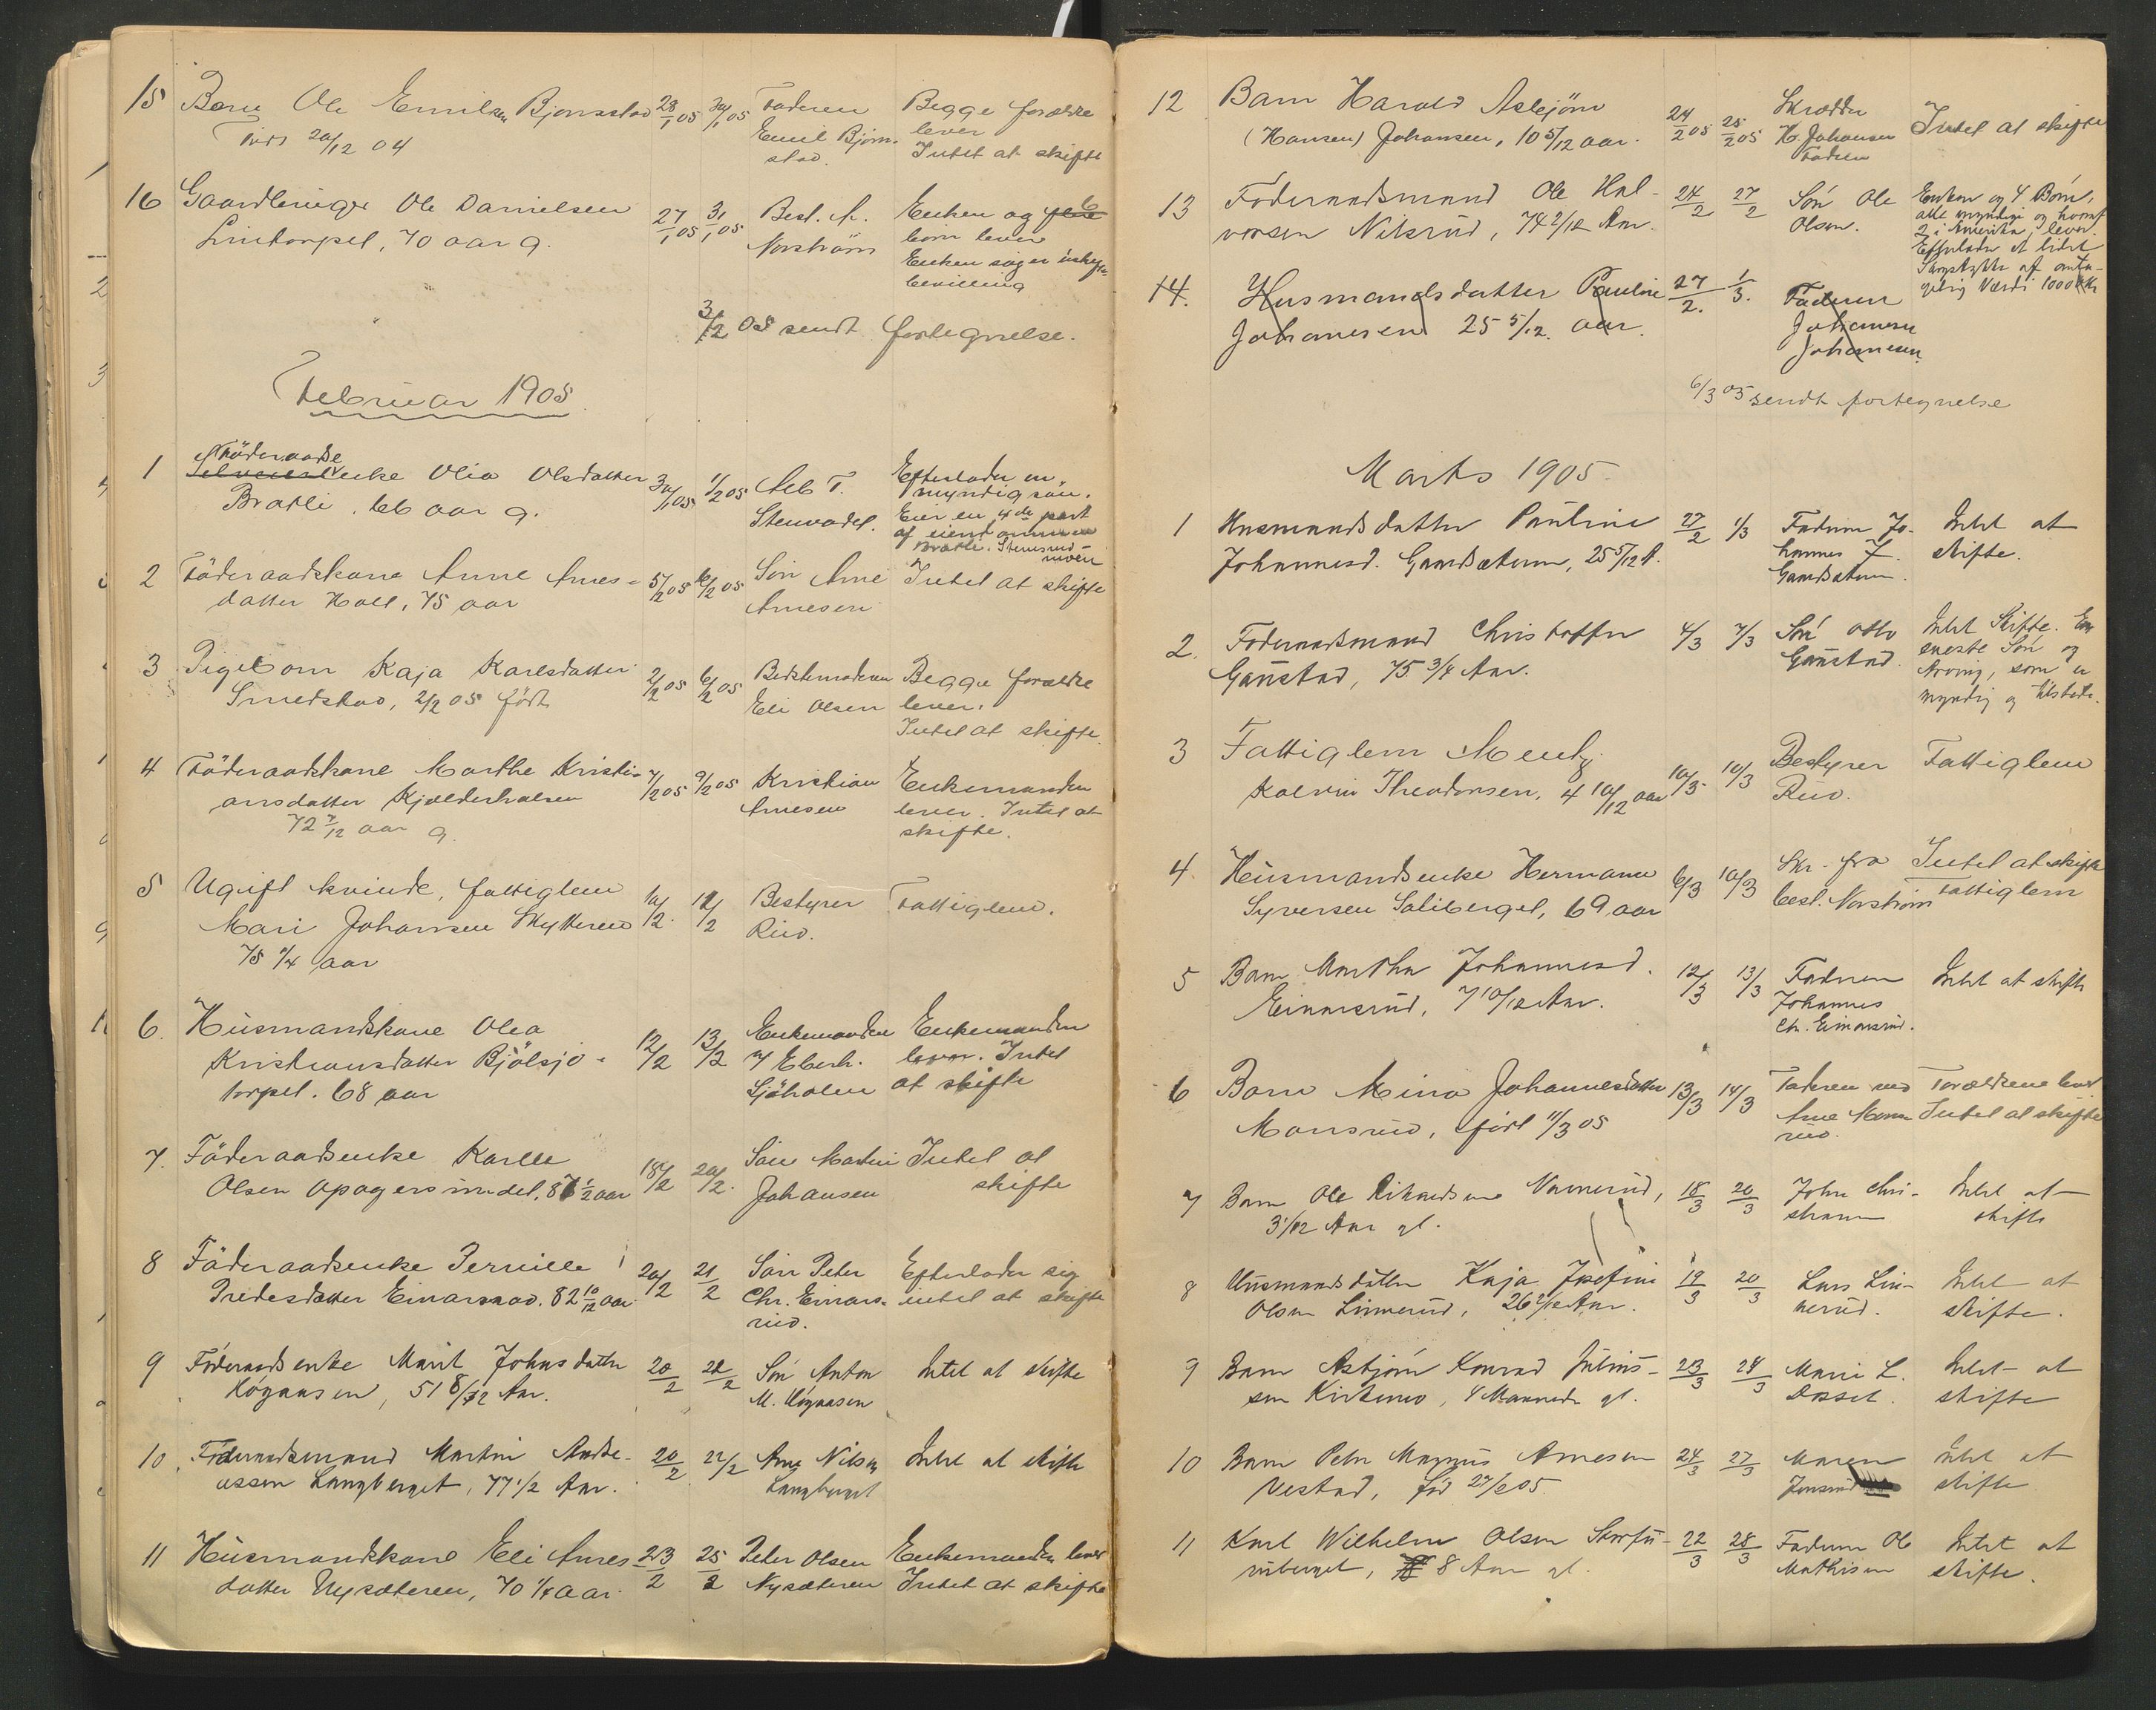 15 Barn Ole Emilsen Bjørnstad 28/1 05 30/1 05 Faderen Begge forældre
født 20/12 04 Emil Bjørn- lever
stad. Intet at skifte
16 Gaardbruger Ole Danielsen 27/1 05 31/1 05 Best. A. Enken og 6
Lintorpet, 70 aar g. Norstrøm børn lever
Enken søger uskifte-
bevilling
3/2 05 sendt fortegnelse.
Februar 1905
1 Föderaads
enke Olia Olsdatter 30/1 05 1/2 05 Alb T. Efterlader en
Bratli. 66 aar g. Stenvadet. myndig søn.
Eier en 4de part
af eiendommen
Bratli. Stensrud-
moen
2 Föderaadskone Anne Arnes- 5/2 05 6/2 05 Søn Arne Intet at skifte
datter Holl, 75 aar Arnesen
3 Pigebarn Kaja Karlsdatter 2/2 05 6/2 05 Bedstemoderen Begge forældre
Smedstad, 2/2 05 født Eli Olsen lever.
Intet at skifte.
4 Föderaadskone Marthe Kristi- 7/2 05 9/2 05 Kristian Enkemanden
ansdatter Kjælderhalsen Arnesen lever. Intet at
72 7/12 aar g. skifte.
5 Ugift kvinde, fattiglem 10/2. 12/2 Bestyrer Fattiglem.
Mari Johansen Skytteren Riud.
75 1/4 aar
6. Husmandskone Olea 12/2 13/2 Enkemanden Enkemanden
Kristiansdatter Bjølsjø- Eberh. lever. Intet
torpet. 68 aar Sjøholen at skifte
7. Föderaadsenke Karen 18/2 20/2. Søn Martin Intet at
Olsen Opagersindet, 87 1/2 aar Johansen skifte
8 Föderaadsenke Pernille 20/2 21/2 Søn Peter Efterlader sig
Predesdatter Einarsrud. 82 10/12 aar Chr. Einars- intet at skifte
rud.
9 Föderaadsenke Marit Johnsdatter 20/2 22/2 Søn Anton Intet at skifte
Høgaasen, 51 8/12 Aar. M. Høgaasen
10. Föderaadsmand Martin Andre- 20/2 22/2 Arne Nilsen Intet at skifte
assen Langberget, 77 1/2 Aar. Langberget
11 Husmandskone Eli Arnes- 23/2 25/2 Peter Olsen Enkemanden lever
datter Nysæteren, 70 1/4 aar. Nysæteren Intet at skifte
12 Barn Harald Asbjørn 24/2 05 25/2 05 Skrædder Intet at skifte
(Hansen) Johansen, 10 5/12 aar. H. Johansen
Faderen
13 Föderaadsmand Ole Hal- 24/2 27/2 Søn Ole Enken og 4 Børn,
vorsen Nilsrud, 74 2/12 Aar. Olsen. alle myndige og hvoraf
2 i Amerika, lever.
Efterlader et lidet
Skogstykke af anta-
gelig Værdi 1000 Kr
14. Husmandsdatter Pauline 27/2. 1/3. Faderen
Johannesen 25 5/12. aar. Johannes
Johannesen.
6/3 05 sendt fortegnelse
Marts 1905
1 Husmandsdatter Pauline 27/2 1/3 Faderen Jo- Intet at
Johannesd. Gaardsæteren, 25 5/12 A. hannes J. skifte.
Gaardsæteren.
2. Foderaadsmand Christoffer 4/3 7/3 Søn Otto Intet Skifte. En
Gaustad, 75 3/4 Aar. Gaustad. eneste Søn og
Arving, som er
myndig og tilstede.
3 Fattiglem Mentz 10/3 10/3 Bestyrer Fattiglem
Kalvin Theodorsen, 4 10/12 aar Riud.
4. Husmandsenke Hermana 6/3 10/3 Skr. fra Intet at skifte
Syversen Saliberget, 69 aar best. Norstrøm Fattiglem
5 Barn Martha Johannesd. 12/3 13/3 Faderen Intet at skifte
Einarsrud, 7 10/12 Aar. Johannes
Chr. Einarsrud.
6 Barn Mina Johannesdatter 13/3 14/3 Faderen ved Forældrene lever
Monsrud, født 11/3 05 Arne Mons- Intet at skifte
rud.
7 Barn Ole Rikardsen Unnerud, 18/3 20/3 John Chri- Intet at
3 1/12 Aar gl. stiansen skifte
8 Husmandsdatter Kaja Josefine 19/3 20/3 Lars Lin- Intet at
Olsen Linnerud, 26 2/12 Aar. nerud. skifte.
9 Barn Asbjørn Konrad Julius- 23/3 24/3 Marie L. Intet at
sen Kirkemo, 4 Maaneder gl. Dosset. skifte
10 Barn Peter Magnus Arnesen 24/3 27/3 Maren Intet at
Vestad, fød 27/2 05. Jensrud skifte
11 Karl Wilhelm Olsen 22/3 28/3 Faderen Ole Intet at
8 Aar gl. Mathisen skifte.